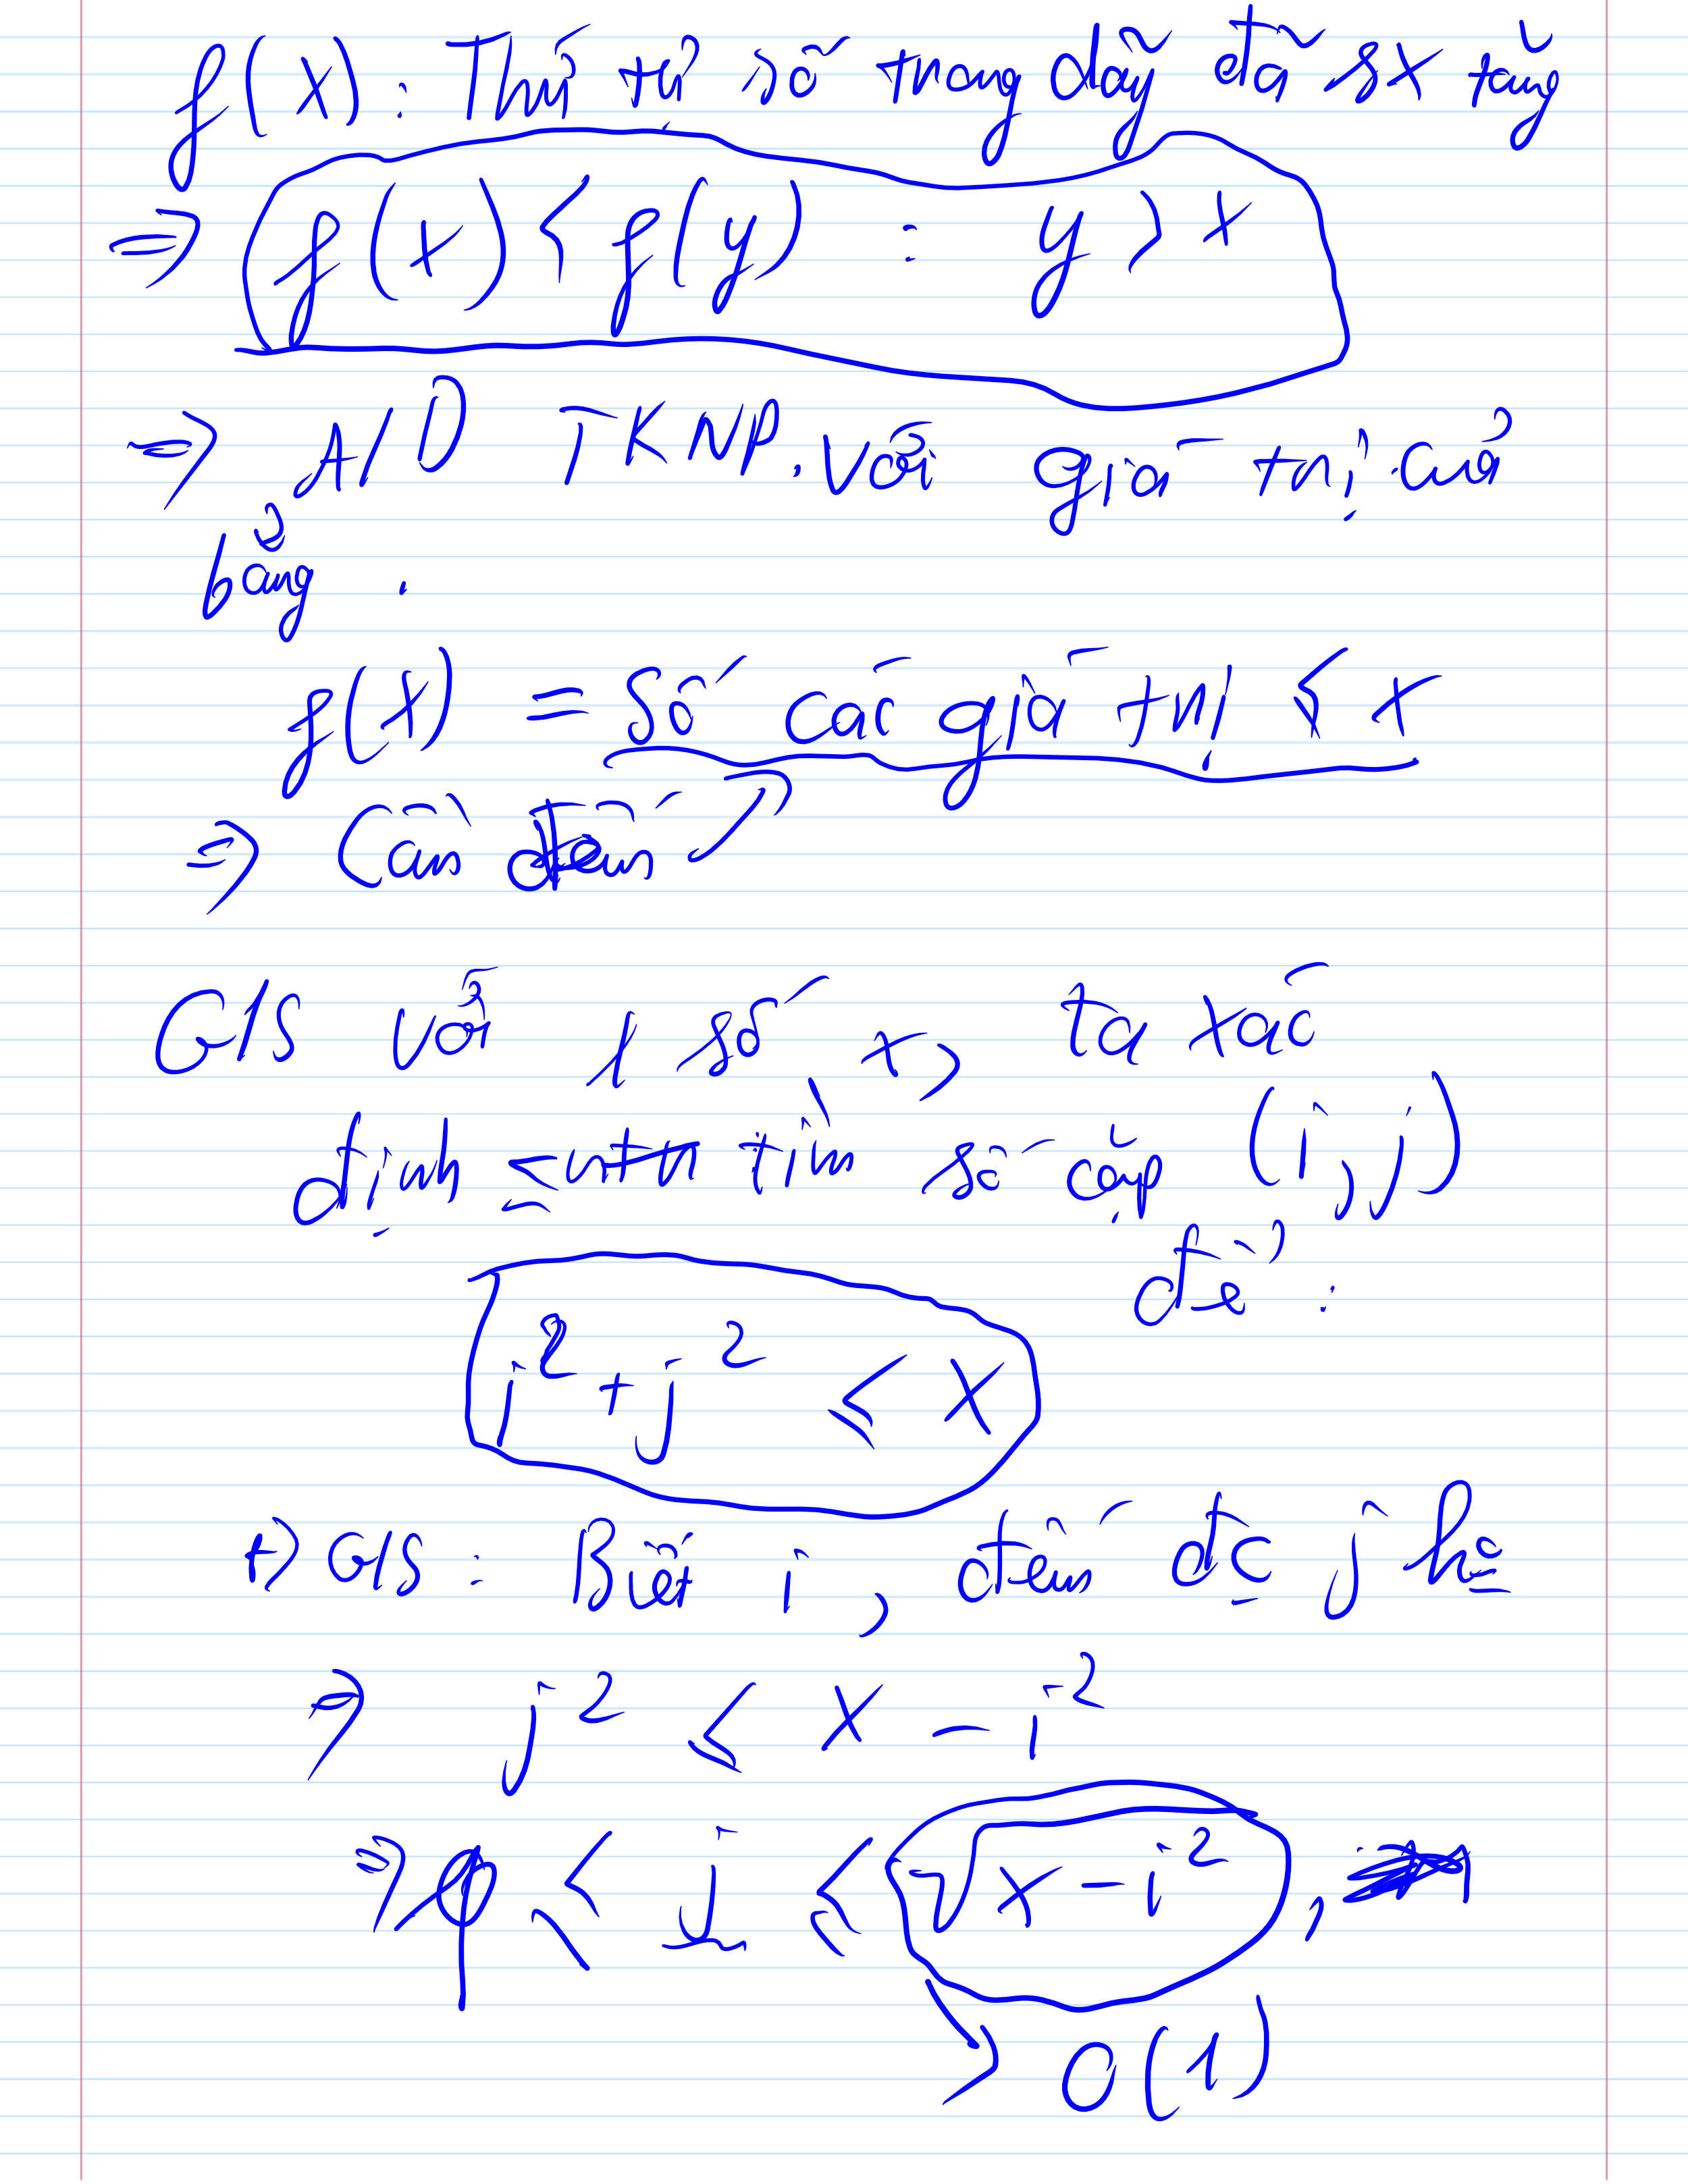 f(x): Thứ tự số trong dãy đã sx tăng
⇒ f(x) < f(y) : y > x
⇒ AD TKNP. với giá trị của
bảng.
f(x) = số các giá trị ≤ x
⇒ Cần đếm
G/s với 1 số x, ta xác
định tìm số cặp (i, j)
để:
i² + j² ≤ x
+) G/s: Biết i, đếm đc j
⇒ j² ≤ x - i²
⇒ ≤ j ≤ √x - i²,
→ O(1)